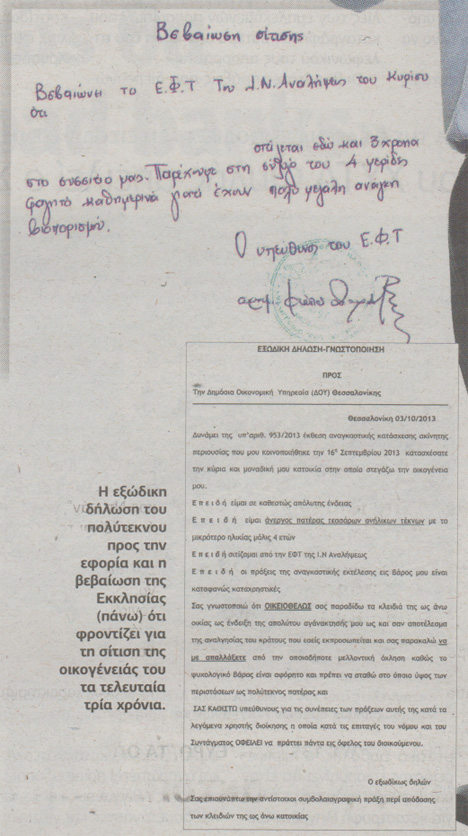 Βεβαίωση σίτισης
Βεβαιώνει το Ε.Φ.Τ Του Ι.Ν. Αναλήψεως του Κυρίου
ότι
σιτίζεται εδώ και 3 χρόνια
στο συσσίτιο μας. Παρέχουμε στη σύζυγό του 4 μερίδες
φαγητό καθημερινά γιατί έχουν πολύ μεγάλη ανάγκη
βιοπορισμού.
Ο υπεύθυνος του Ε.Φ.Τ
ΕΞΩΔΙΚΗ ΔΗΛΩΣΗ-ΓΝΩΣΤΟΠΟΙΗΣΗ
ΠΡΟΣ
Την Δημόσια Οικονομική Υπηρεσία (ΔΟΥ) Θεσσαλονίκης
Θεσσαλονίκη 03/10/2013
Δυνάμει της υπ'αριθ. 953/2013 έκθεση αναγκαστικής κατάσχεσης ακίνητης
περιουσίας που μου κοινοποιήθηκε την 16η Σεπτεμβρίου 2013 κατασχέσατε
την κύρια και μοναδική μου κατοικία στην οποία στεγάζω την οικογένεια
μου.
Ε π ε ι δ ή είμαι σε καθεστώς απόλυτης ένδειας
Ε π ε ι δ ή είμαι άνεργος πατέρας τεσσάρων ανήλικων τέκνων με το
μικρότερο ηλικίας μόλις 4 ετών
Ε π ε ι δ ή σιτίζομαι από την ΕΦΤ της Ι.Ν Αναλήψεως
Ε π ε ι δ ή οι πράξεις της αναγκαστικής εκτέλεσης εις βάρος μου είναι
καταφανώς καταχρηστικές
Σας γνωστοποιώ ότι ΟΙΚΕΙΟΘΕΛΩΣ σας παραδίδω τα κλειδιά της ως άνω
οικίας ως ένδειξη της απολύτου αγανάκτησής μου ως και σαν αποτέλεσμα
της αναλγησίας του κράτους που εσείς εκπροσωπείται και σας παρακαλώ να
με απαλλάξετε από την οποιαδήποτε μελλοντική όχληση καθώς το
ψυχολογικό βάρος είναι αφόρητο και πρέπει να σταθώ στο όποιο ύψος των
περιστάσεων ως πολύτεκνος πατέρας και
ΣΑΣ ΚΑΘΙΣΤΩ υπεύθυνους για τις συνέπειες των πράξεων αυτής της κατά τα
λεγόμενα χρηστής διοίκησης, η οποία κατά τις επιταγές του νόμου και του
Συντάγματος ΟΦΕΙΛΕΙ να πράττει πάντα εις όφελος του διοικούμενου.
Ο εξωδίκως δηλών
Σας επισυνάπτω την αντίστοιχη συμβολαιογραφική πράξη περί απόδοσης
των κλειδιών της ως άνω κατοικίας
Η εξώδικη
δήλωση του
πολύτεκνου
προς την
εφορία και η
βεβαίωση της
Εκκλησίας
(πάνω) ότι
φροντίζει για
τη σίτιση της
οικογένειάς του
τα τελευταία
τρία χρόνια.